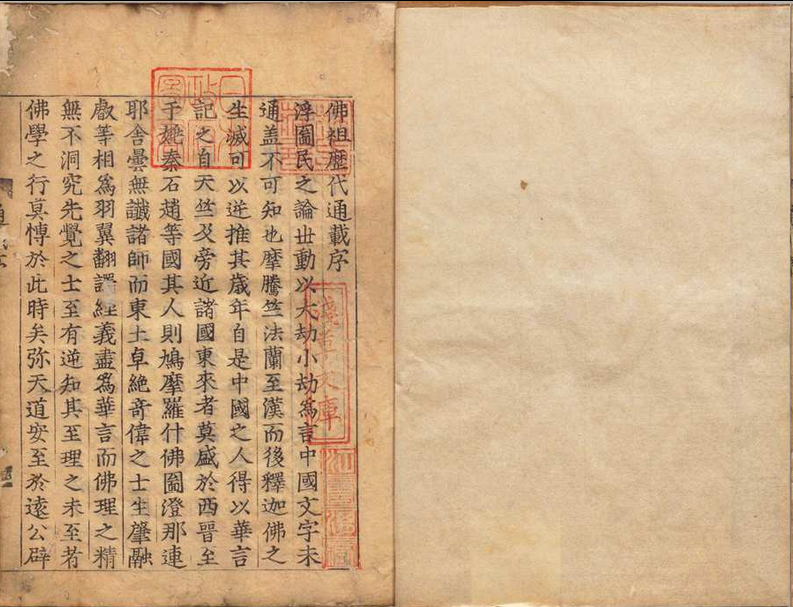 佛祖歷代通載序
浮圖氏之論世動以大劫小劫為言中國文字未
通盖不可知也摩騰竺法蘭至漢而後釋迦佛之
生滅可以逆推其歲年自是中國之人得以華言
記之自天竺及旁近諸國東來者莫盛於西晋至
于姚秦石趙等國其人則鳩摩羅什佛圖澄那連
耶舍曇無讖諸師而東土卓絶竒偉之士生肇融
叡等相為羽翼翻譯經義盡為華言而佛理之精
無不洞究先覺之士至有逆知其至理之未至者
佛學之行莫博於此時矣弥天道安至於遠公辟
淺草文庫